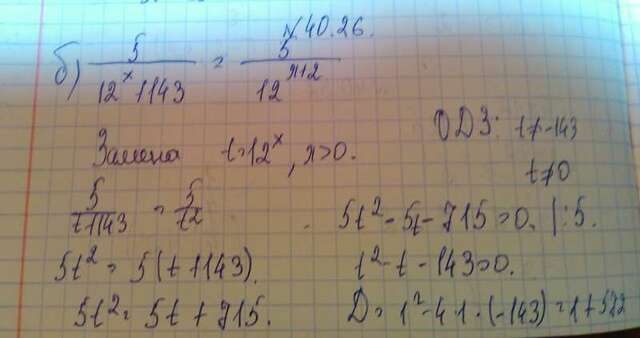 №40.26.
б) 5/(12^x+143) = 5/12^(x+2)
Замена t=12^x, x>0.
ОДЗ: t≠-143
t≠0
5/(t+143) = 5/t2
5t² = 5(t+143).
5t² = 5t + 715.
5t² - 5t - 715 = 0. |:5.
t² - t - 143 = 0.
D = 1² - 4·1·(-143) = 1+572